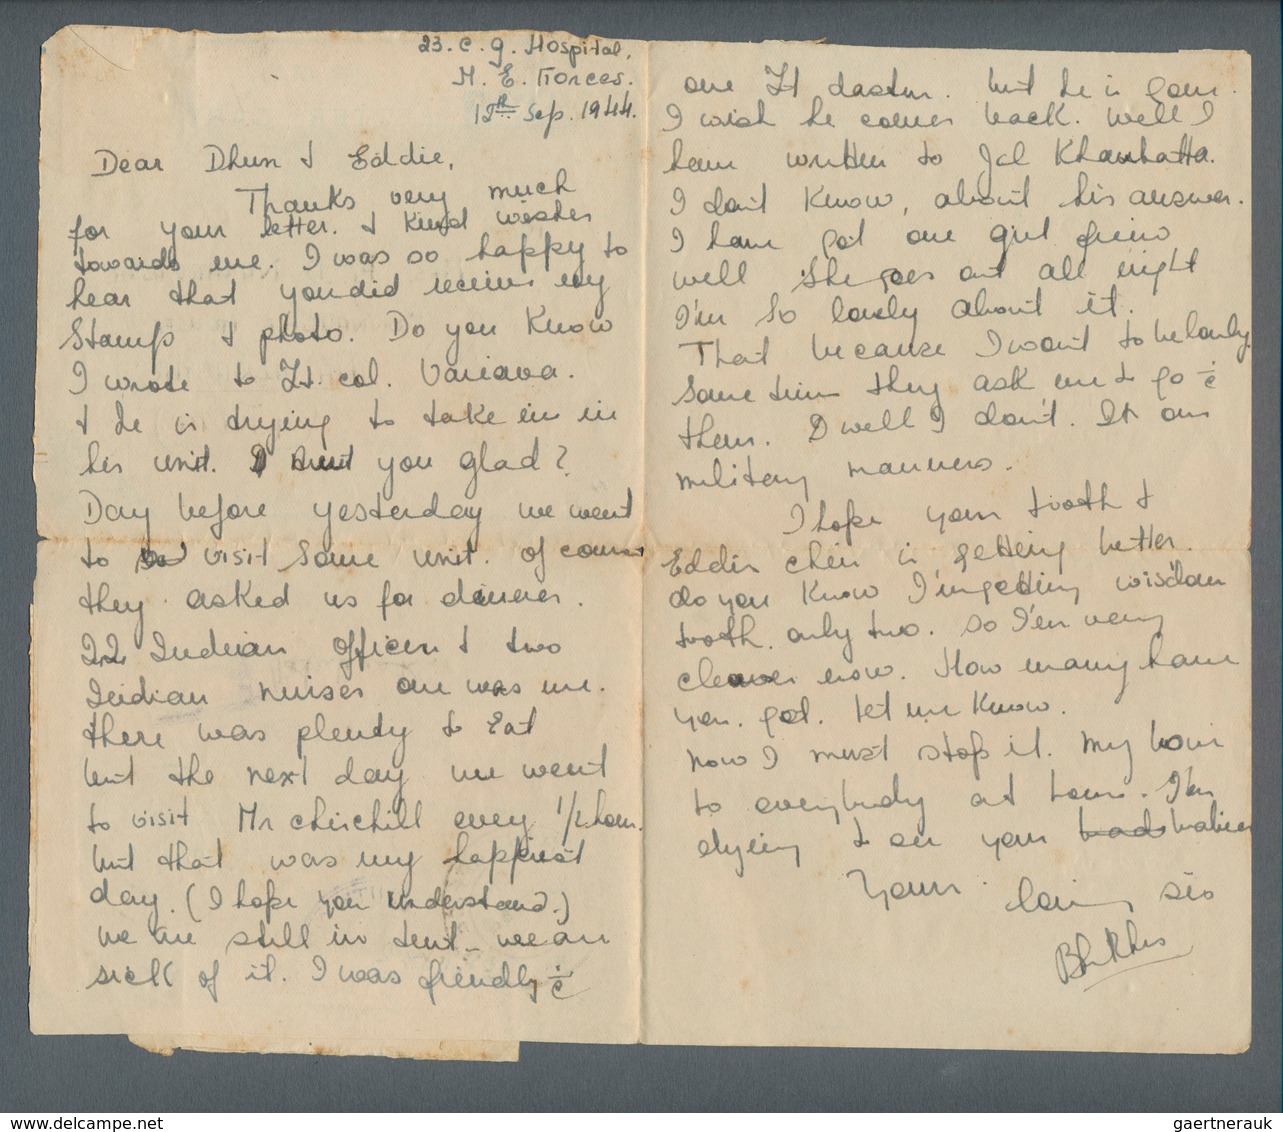 23. C. G. Hospital,
M. E. Forces.
12th Sep. 1944.
Dear Dhun & Eddie,
Thanks very much
for your letter. & kind wishes
towards me. I was so happy to
hear that you did receive my
Stamps & photo. Do you Know
I wrote to Lt. col. Variava.
& he is trying to take me in
his unit. you glad?
Day before yesterday we went
to visit some unit. of course
they asked us for dinner.
22 Indian officers & two
Indian nurses one was me.
there was plenty to Eat
but the next day we went
to visit Mr chirchill every 1/2 hour.
but that was my happiest
day. (I hope you understand.)
we are still in tent - we are
sick of it. I was friendly c̄
one Lt dastur. but he is gone.
I wish he comes back. well I
have written to Jal Khambatta.
I don't Know, about his answer.
I have got one girl friend
well she goes out all night
I'm so lonely about it.
That because I want to be lonly.
some time they ask me to go c̄
them. well I don't. It our
military manners.
I hope your tooth &
Eddie chin is getting better.
do you Know I'm getting wisdom
tooth. only two. so I'm very
clever now. How many have
you. got. let me Know.
now I must stop it. My love
to everybody at home. I'm
dyeing to see your babies
Your loving sis
gaertnerauk @ www.delcampe.net